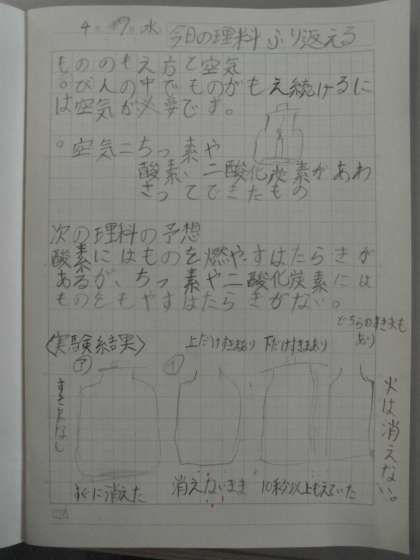 4. 17. 水 今日の理料 ふり返える
もののもえ方と空気
。びんの中でものがもえ続けるに
は空気が必要です。
。空気=ちっ素や
酸素、二酸化炭素があわ
さってできたもの
次の理料の予想
酸素にはものを燃やすはたらきが
あるが、ちっ素や二酸化炭素には
ものをもやすはたらきがない。
どちらのすきまも
あり
〈実験結果〉 上だけすきまあり 下だけすきまあり
すきまなし
火は消えない。
すぐに消えた 消えないまま 10秒以上もえていた